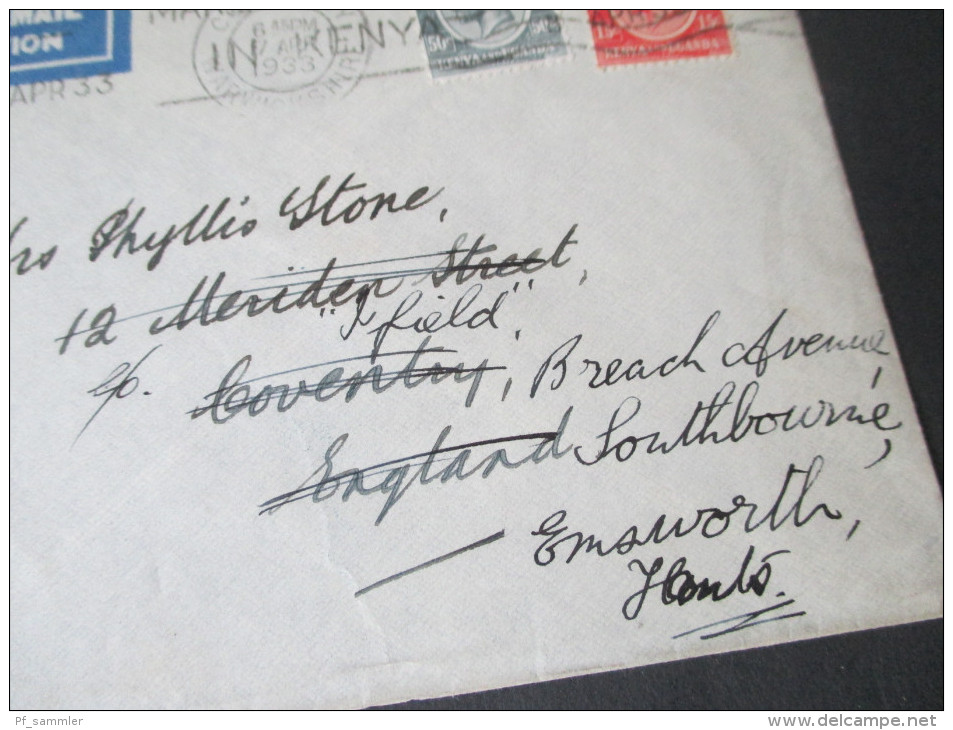 MAIL
ION
APR 33
6 45 PM
7 APR
1933
IN KENYA
50
50
KENYA
15
15
KENYA UGANDA
Mrs Phyllis Stone,
12 Meriden Street,
"Ifield",
c/o. Coventry, Breach Avenue,
England Southbourne,
Emsworth,
Hants.
Pf_sammler
www.delcampe.net